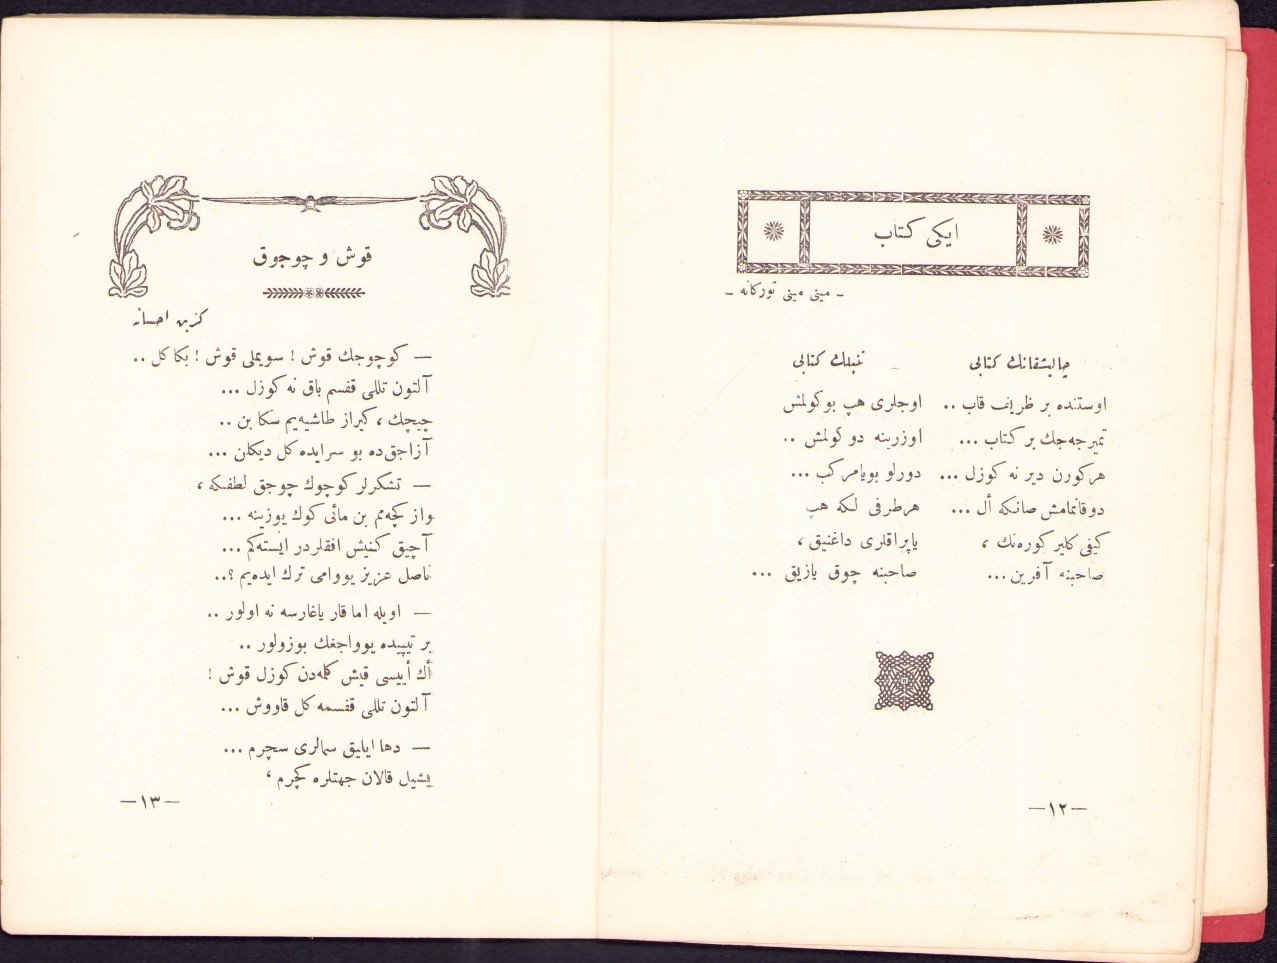 ایکی کتاب
ـ مینی مینی تورکانه ـ
چالیشقانك کتابی
اوستنده بر ظریف قاب ..
تمیزجه‌جك بر کتاب ...
هرکورن دیر نه کوزل ...
دوقانمامش صانکه أل ...
کیفی کلیر کوره‌نك ،
صاحبنه آفرین ...
تنبلك کتابی
اوجلری هپ بوکولمش
اوزرینه دوکولمش ..
دورلو بویامرکب ...
هرطرفی لکه هپ
یاپراقلری داغنیق ،
صاحبنه چوق یازیق ...
—١٢—
قوش و چوجوق
احسانه
— کوچوجك قوش ! سویملی قوش ! بکا کل ..
آلتون تللی قفسم باق نه کوزل ...
چیچك ، کیراز طاشیه‌یم سکا بن ..
آزاجق‌ده بو سرایده کل دیکلن ...
— تشکرلر کوچوك چوجق لطفکه ،
واز کچه‌مم بن مائی کوك یوزینه ...
آچیق کنیش افقلردر ایسته‌کم ...
ناصل عزیز یووامی ترك ایده‌یم ؟..
— اویله اما قار یاغارسه نه اولور ..
بر تیپیده یوواجغك بوزولور ..
أك أییسی قیش کلمه‌دن کوزل قوش !
آلتون تللی قفسمه کل قاووش ...
— دها ایلیق سمالری سچرم ...
یشیل قالان جهتلره کچرم ،
—١٣—
PHEBUS